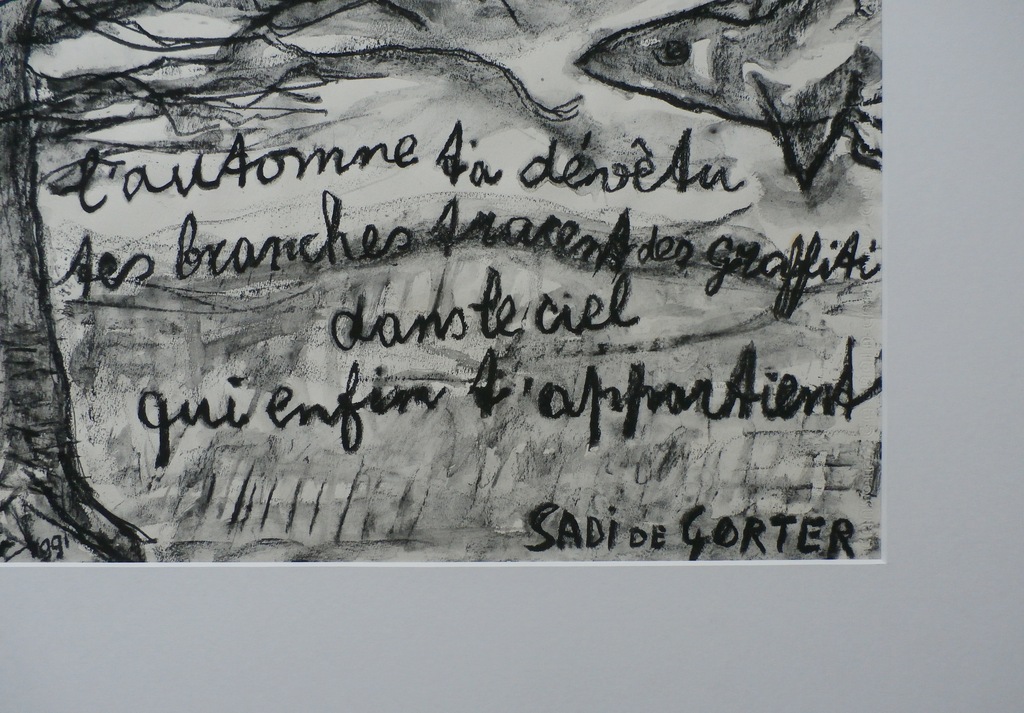 l'automne t'a dévêtu
tes branches tracent des graffiti
dans le ciel
qui enfin t'appartient
SADI DE GORTER